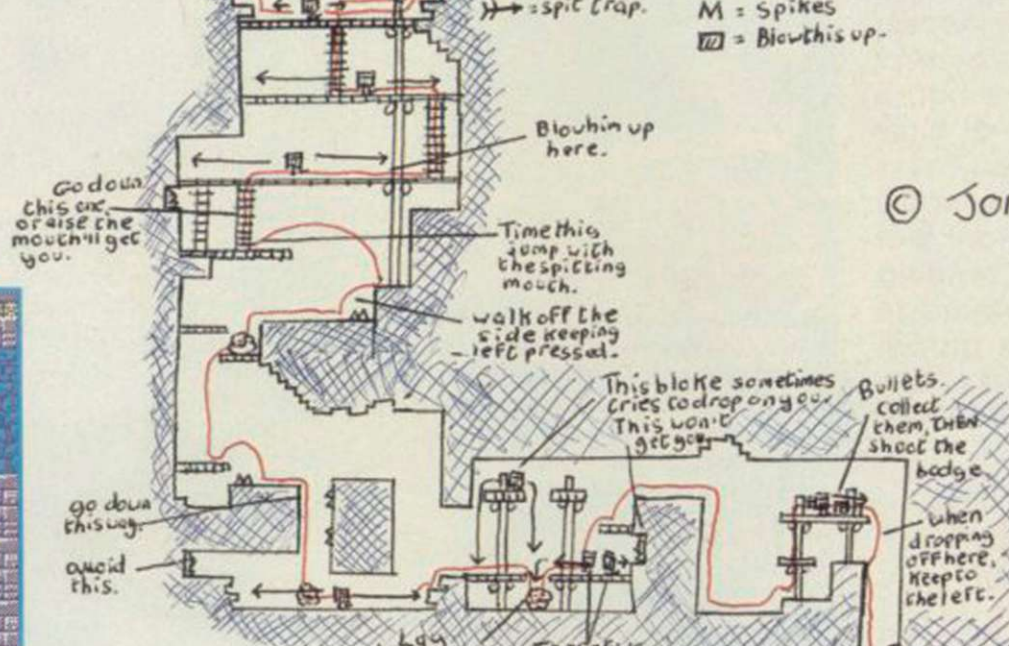 = spit trap.
M = Spikes
= Blow this up.
Blow him up
here.
Go down
this one,
or else the
mouth'll get
you.
© Jo
Time this
jump with
the spitting
mouth.
walk off the
side keeping
left pressed.
This bloke sometimes
tries to drop on you.
This won't
get you.
Bullets.
collect
them, THEN
shoot the
badge
go down
this way.
avoid
this.
when
dropping
off here,
keep to
the left.
Lay